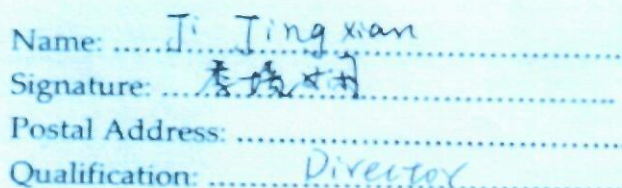 Name: ..... Ji Jing xian
Signature: .....
Postal Address: .....
Qualification: ..... Director